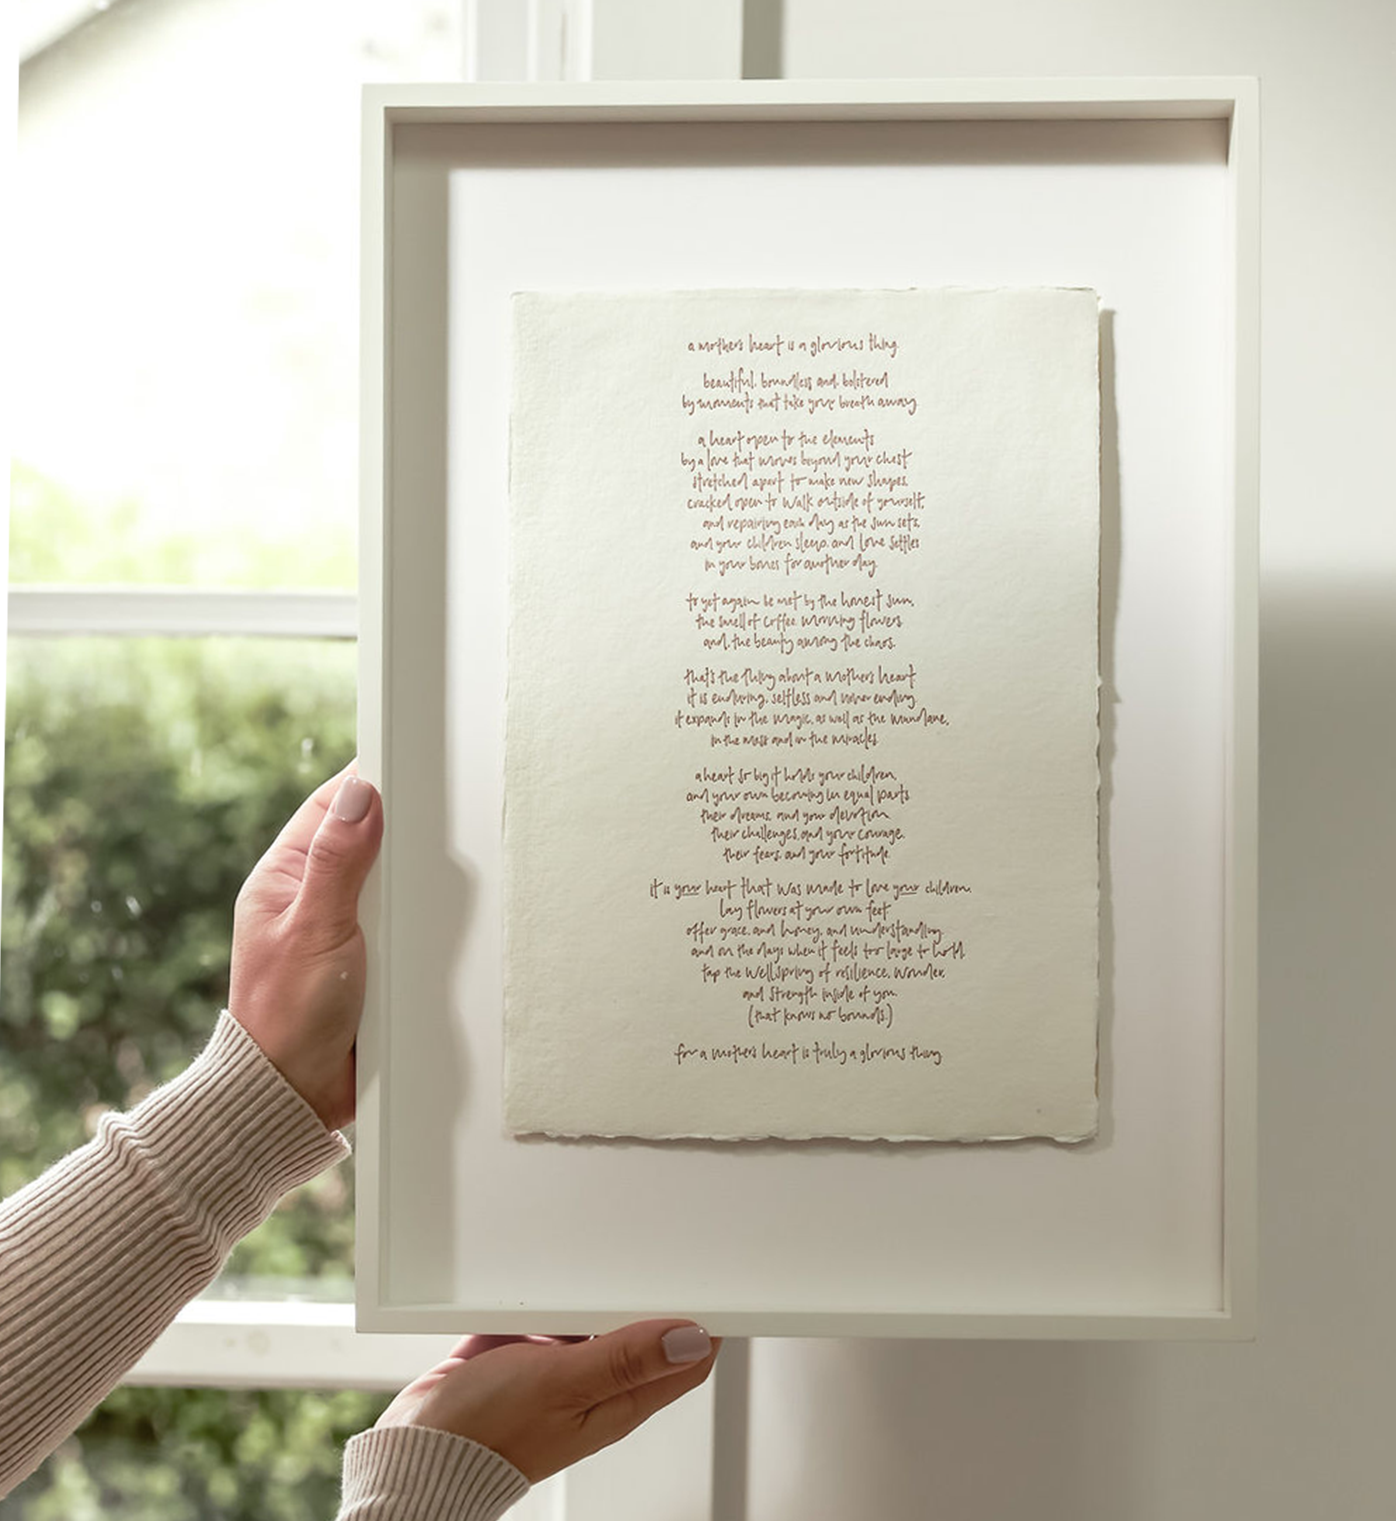 a mothers heart is a glorious thing.
beautiful, boundless and, bolstered
by moments that take your breath away.
a heart open to the elements
by a love that moves beyond your chest
stretched apart to make new shapes,
cracked open to walk outside of yourself,
and repairing each day as the sun sets,
and your children sleep, and love settles
in your bones for another day.
to yet again be met by the honest sun,
the smell of coffee, morning flowers
and, the beauty among the chaos.
that's the thing about a mothers heart
it is enduring, selfless and never ending.
it expands in the magic, as well as the mundane,
in the mess and in the miracles.
a heart so big it holds your children,
and your own becoming in equal parts.
their dreams, and your devotion.
their challenges, and your courage,
their fears, and your fortitude.
it is your heart that was made to love your children.
lay flowers at your own feet
offer grace, and honey, and understanding.
and on the days when it feels too large to hold,
tap the wellspring of resilience, wonder,
and strength inside of you.
(that knows no bounds.)
for a mothers heart is truly a glorious thing.